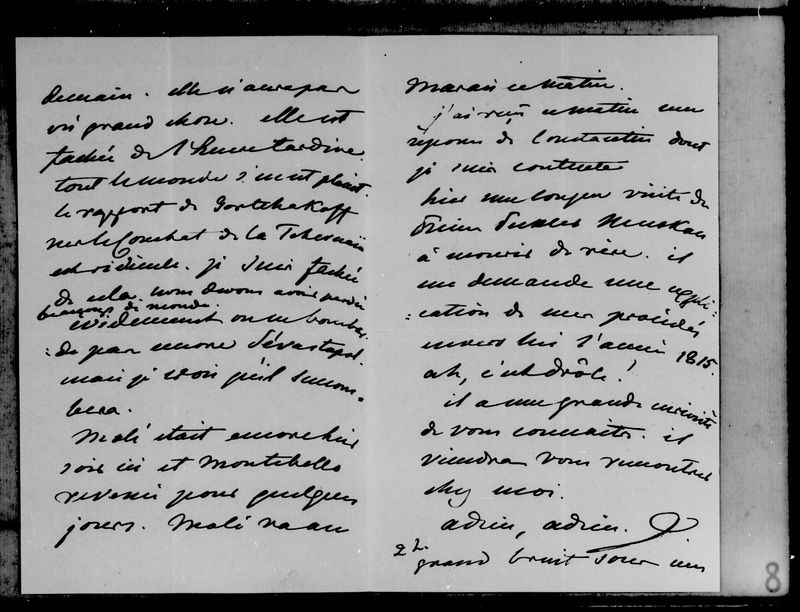 demain. elle n'aura pas
vu grand chose. elle est
fachée de l'heure tardive.
tout le monde s'en plaint.
le rapport de Gortchakoff
sur le Combat de la Tchernaïa
est ridicule. je suis fachée
de cela. nous devons avoir perdu
beaucoup de monde.
évidemment on ne bombar=
=de pas encore Sévastopol.
mais je crois qu'il succom=
bera.
Molé était encore hier
soir ici et Montebello
revenu pour quelques
jours. Molé va au
Marais ce matin.
j'ai reçu ce matin une
réponse de Constantin dont
je suis contente
hier une longue visite du
Prince Puckler Muskau
à mourir de rire. il
me demande une expli=
=cation de mes procédés
envers lui l'année 1815.
ah, c'est drôle!
il a une grande curiosité
de vous connaitre. il
viendra vous rencontrer
chez moi.
adieu, adieu.
2 h.
grand bruit sous mes
8